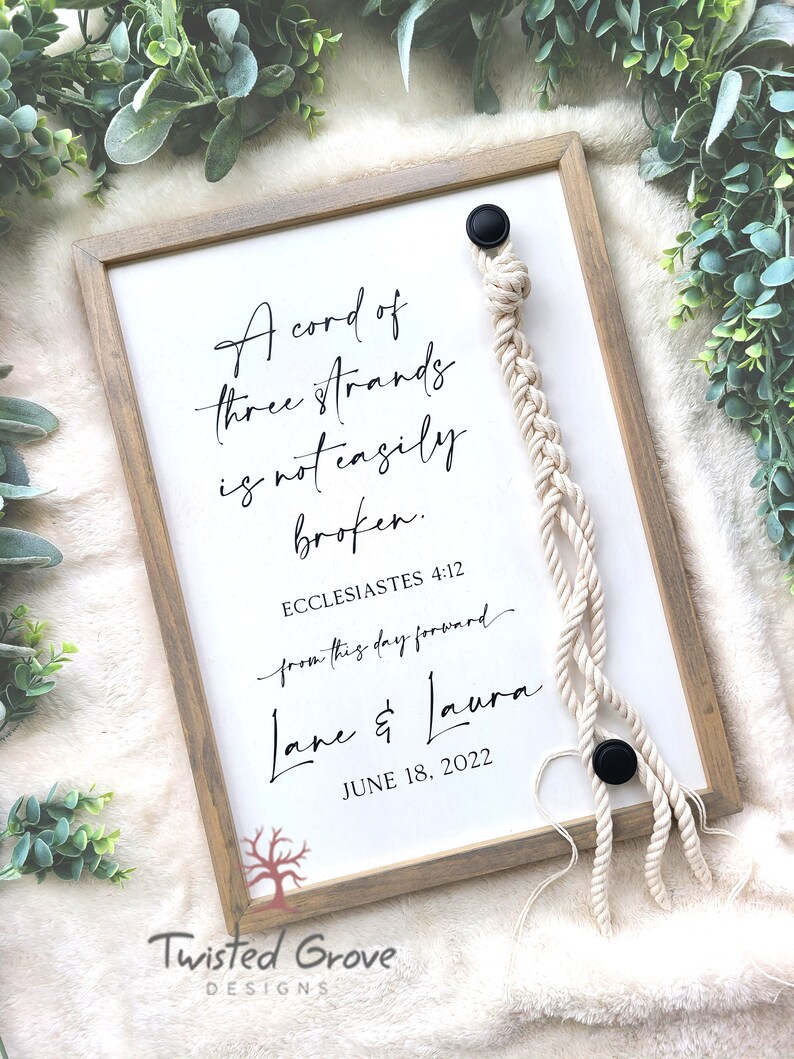 A cord of
three strands
is not easily
broken.
ECCLESIASTES 4:12
from this day forward
Lane & Laura
JUNE 18, 2022
Twisted Grove
DESIGNS